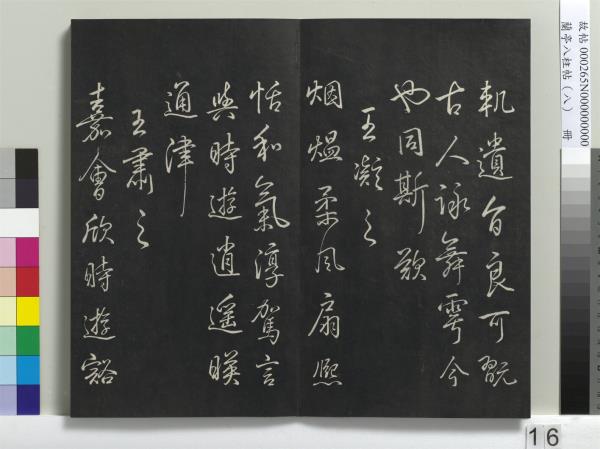 軌遺音良可翫
古人詠舞雩今
也同斯歎
王凝之
烟熅柔風扇熙
恬和氣淳駕言
與時遊逍遙暎
通津
王肅之
嘉會欣時遊豁
故帖 000265N000000000
蘭亭八柱帖(八) 冊
16